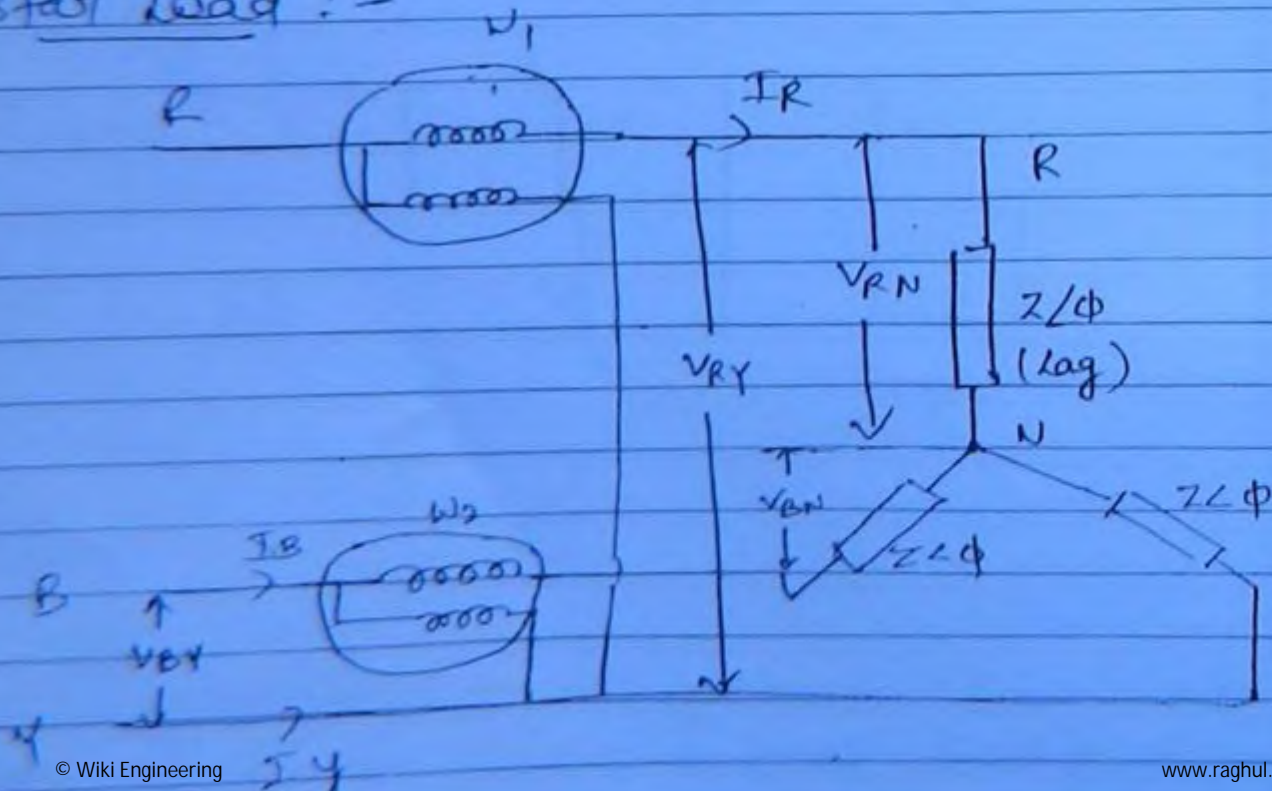 Star Load : -
W1
R
IR
R
VRN
Z∠ϕ
(Lag)
VRY
N
W2
VBN
Z∠ϕ
IB
Z∠ϕ
B
VBY
Y
IY
© Wiki Engineering
www.raghul.